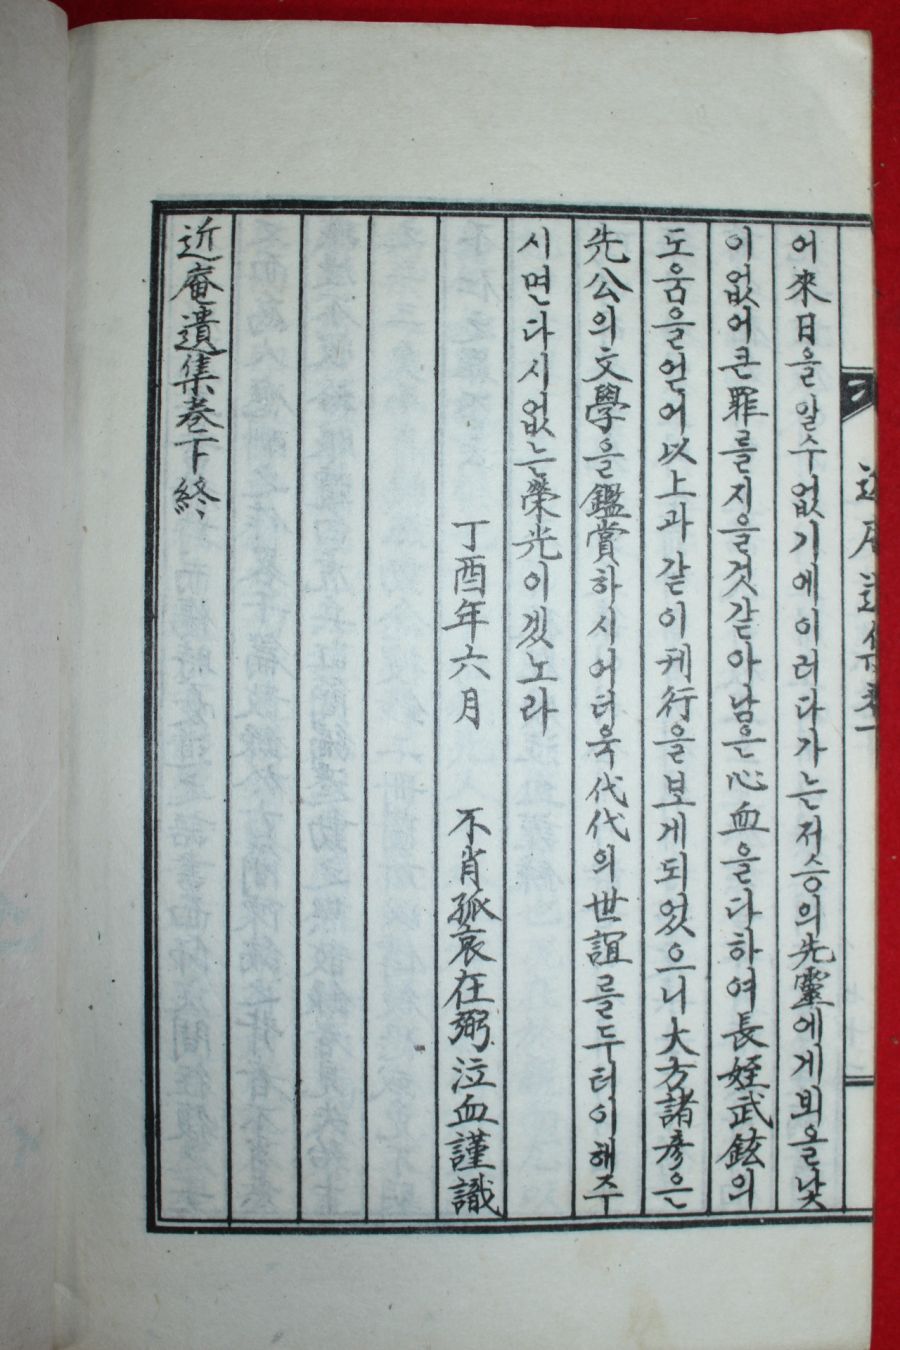 어來日을알수없기에이러다가는저승의先靈에게뵈올낯
이없어큰罪를지을것같아남은心血을다하여長姪武鉉의
도움을얻어以上과같이刊行을보게되었으니大方諸彦은
先公의文學을鑑賞하시어더욱代代의世誼를두터이해주
시면다시없는榮光이겠노라
丁酉年六月 不肖孤哀在弼泣血謹識
近庵遺集卷下終